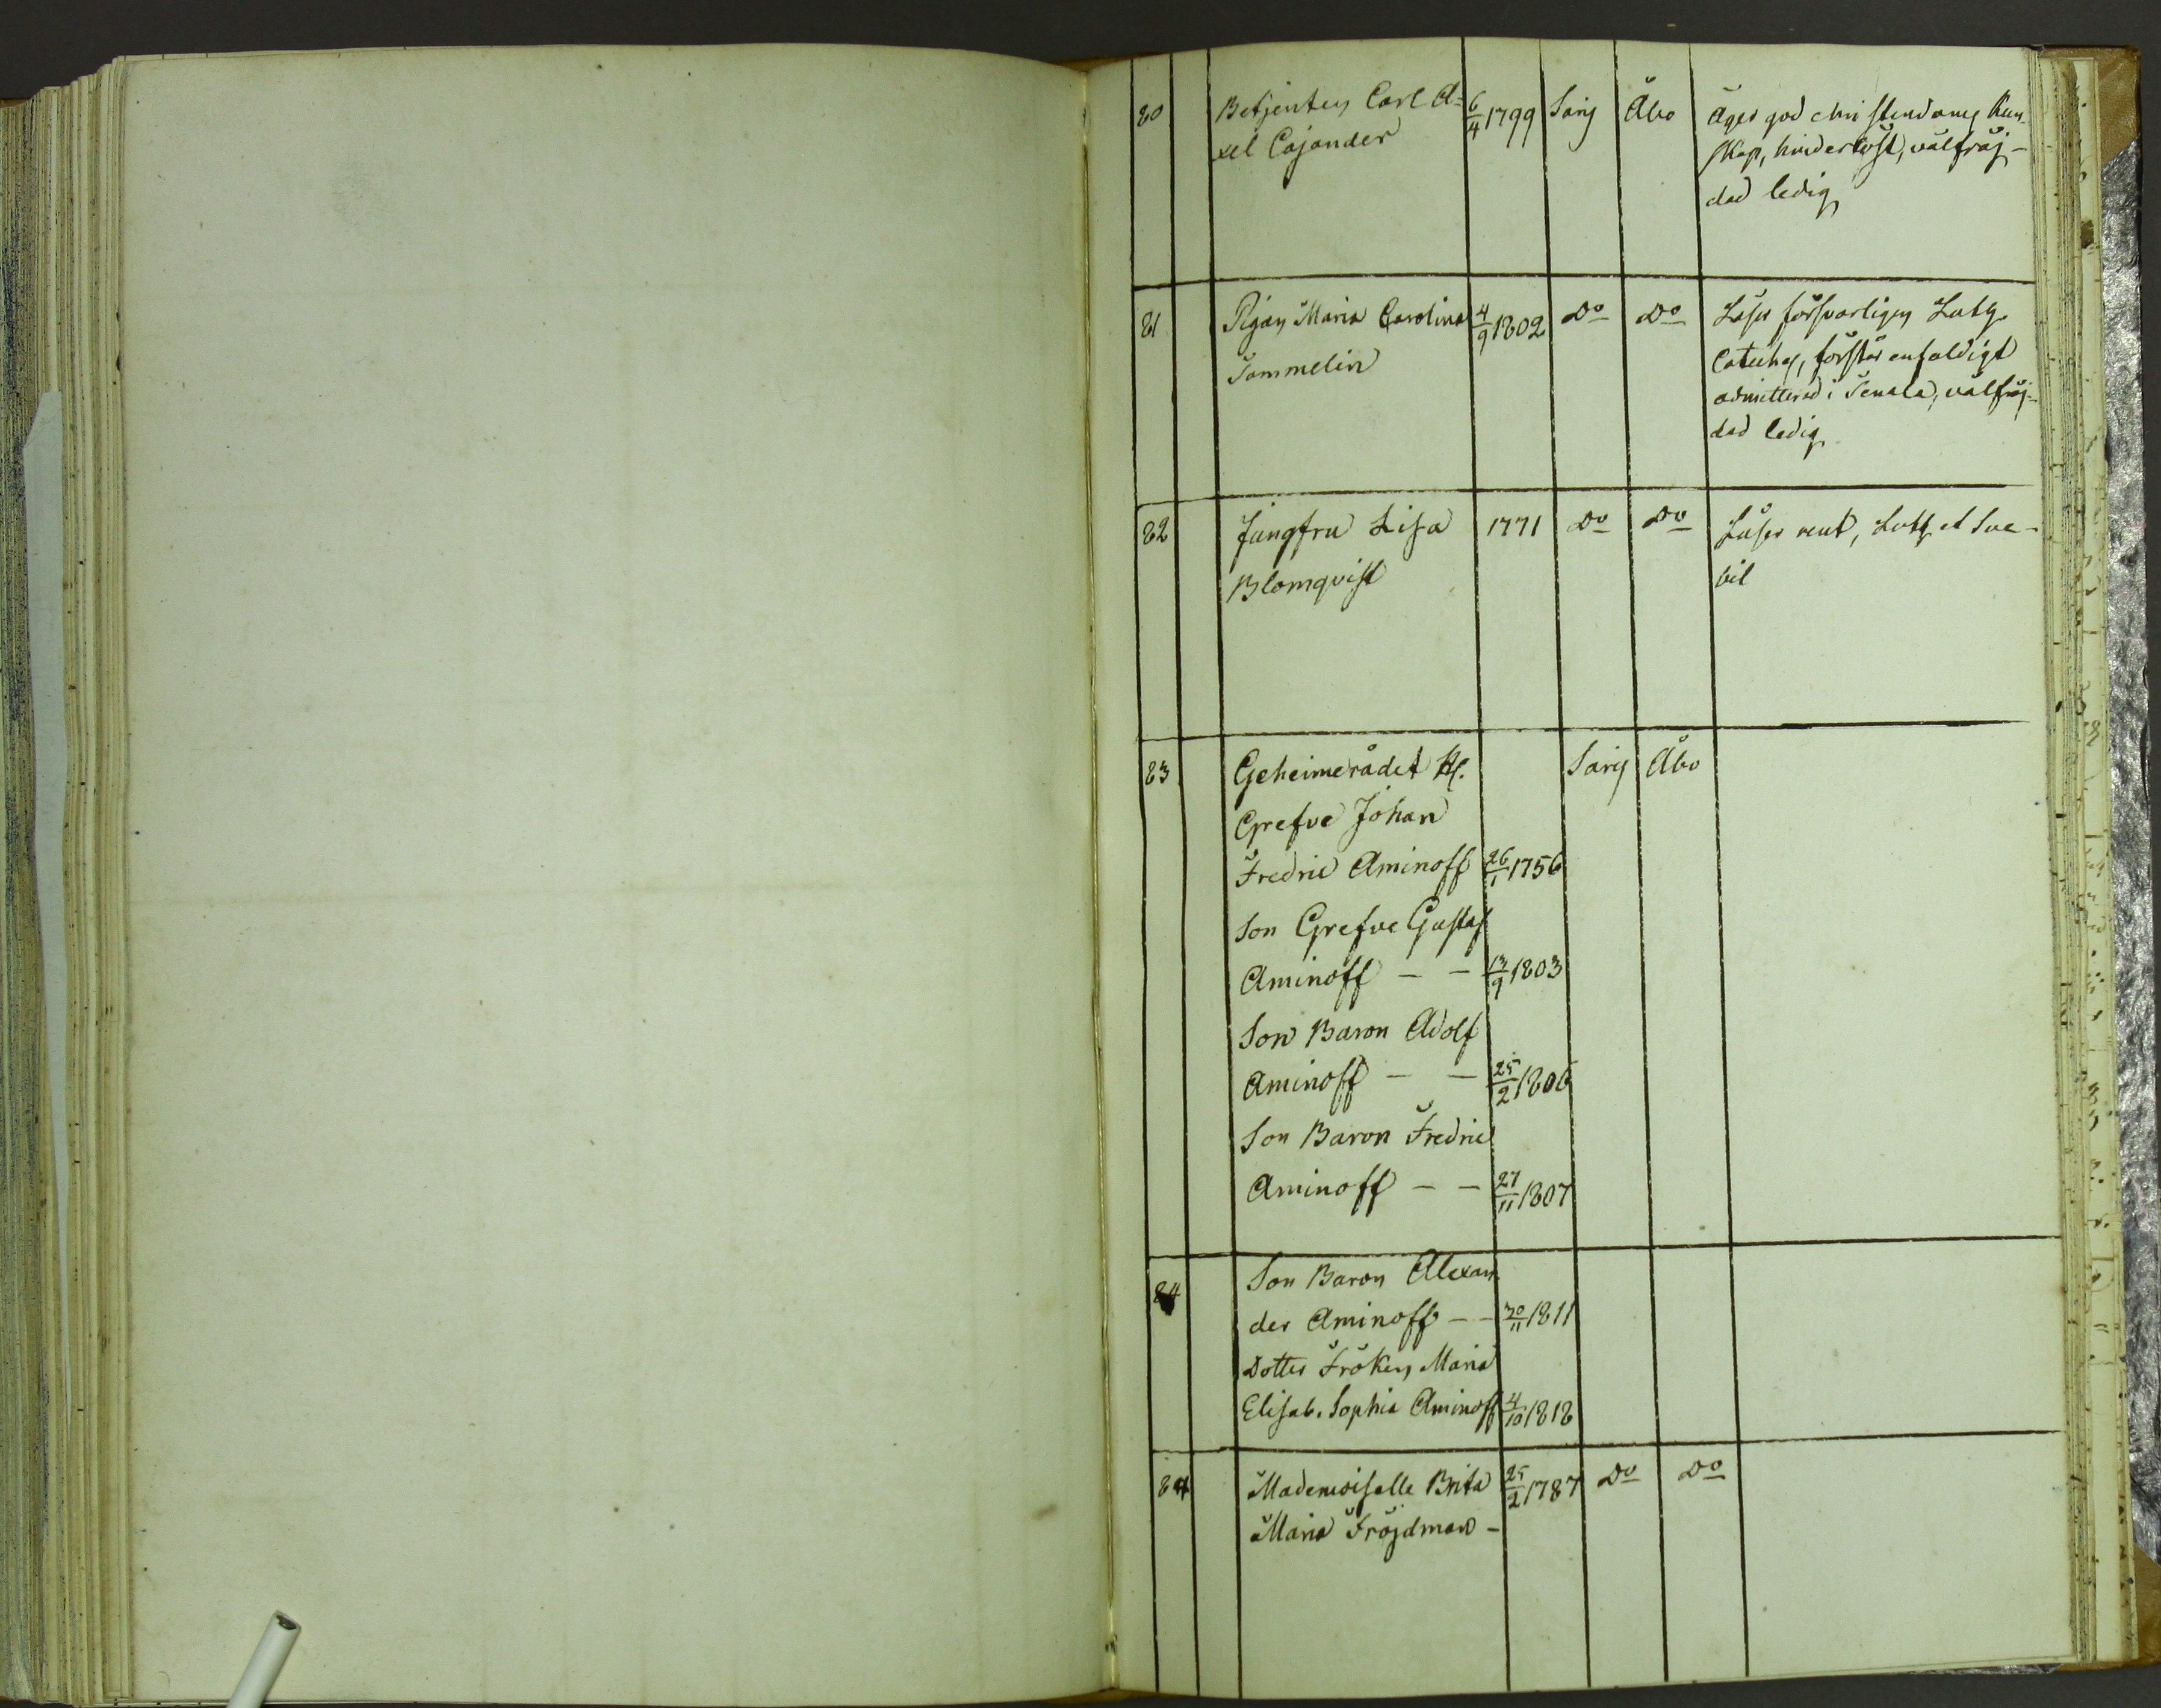 80 Betjenten Carl A= 6/4 1799 Åbo Äger god christendoms kun
xel Cajander skap, hinderlöst, välfräj-
dad ledig
81 Pigan Maria Carolina 4/9 1802 Do Do Läser försvarligen Luth.
Sammelin Catechес, förstår enfaldigt
admitterad i Tenala, välfräj-
dad ledig
82 Jungfru Lisa 1771 Do Do Läser rent, Luth. et Sve-
Blomqvist bil
83 Geheimerådet Hr. Åbo
Grefve Johan
Fredric Aminoff 26/1 1756
Son Grefve Gustaf
Aminoff - - 13/9 1803
Son Baron Adolf
Aminoff - - 25/2 1806
Son Baron Fredric
Aminoff - - 27/11 1807
84 Son Baron Alexan
der Aminoff - - 30/11 1811
Dotter Fröken Maria
Elisab. Sophia Aminoff 4/10 1818
84 Mademoiselle Brita 25/2 1787 Do Do
Maria Fröjdman -